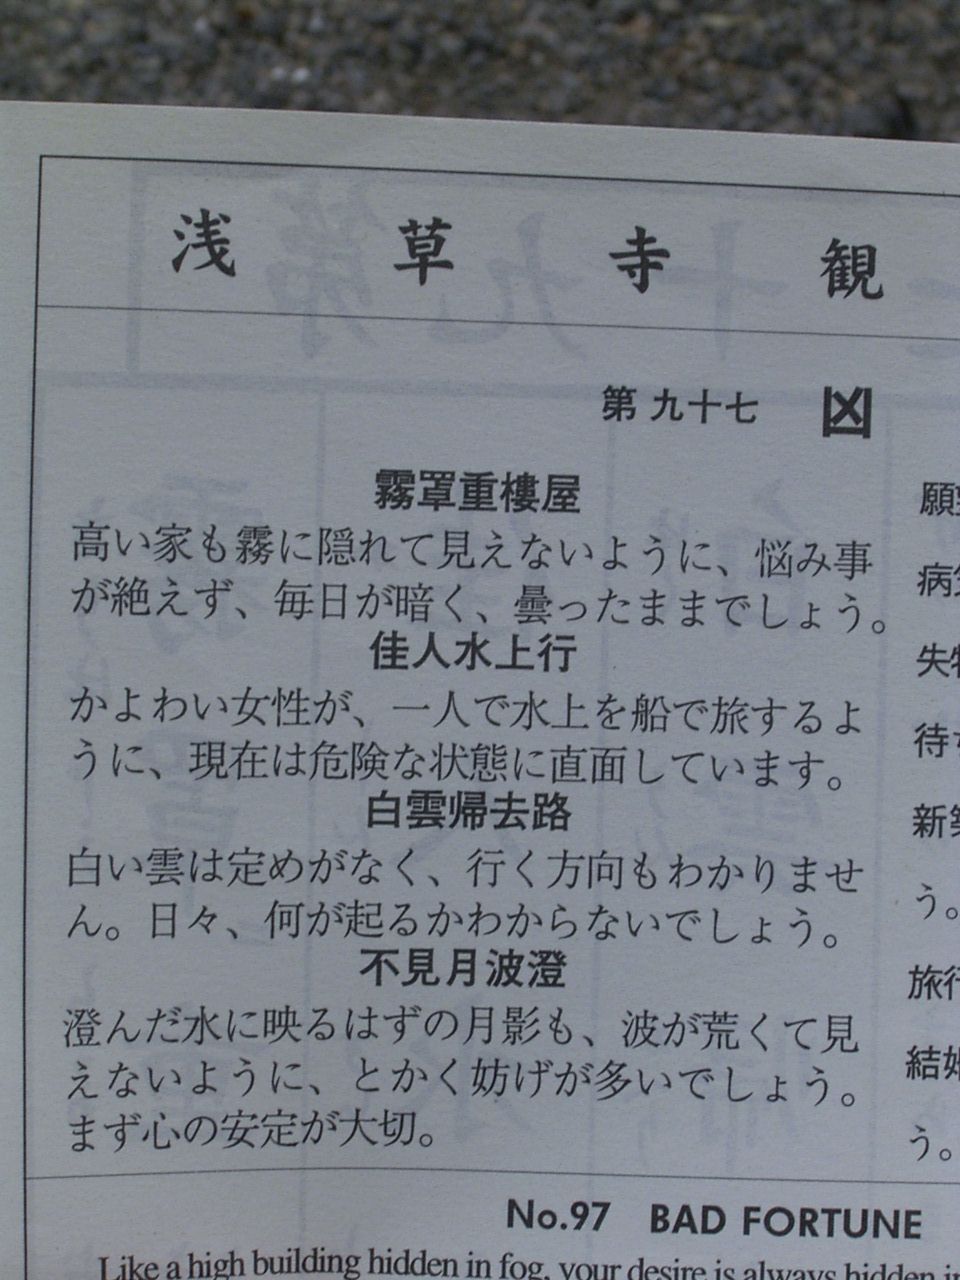 浅草寺観
第九十七 凶
霧罩重樓屋
高い家も霧に隠れて見えないように、悩み事
が絶えず、毎日が暗く、曇ったままでしょう。
佳人水上行
かよわい女性が、一人で水上を船で旅するよ
うに、現在は危険な状態に直面しています。
白雲帰去路
白い雲は定めがなく、行く方向もわかりませ
ん。日々、何が起るかわからないでしょう。
不見月波澄
澄んだ水に映るはずの月影も、波が荒くて見
えないように、とかく妨げが多いでしょう。
まず心の安定が大切。
願望
病気
失物
待ち
新築
う。
旅行
結婚
う。
No.97 BAD FORTUNE
Like a high building hidden in fog, your desire is always hidden in